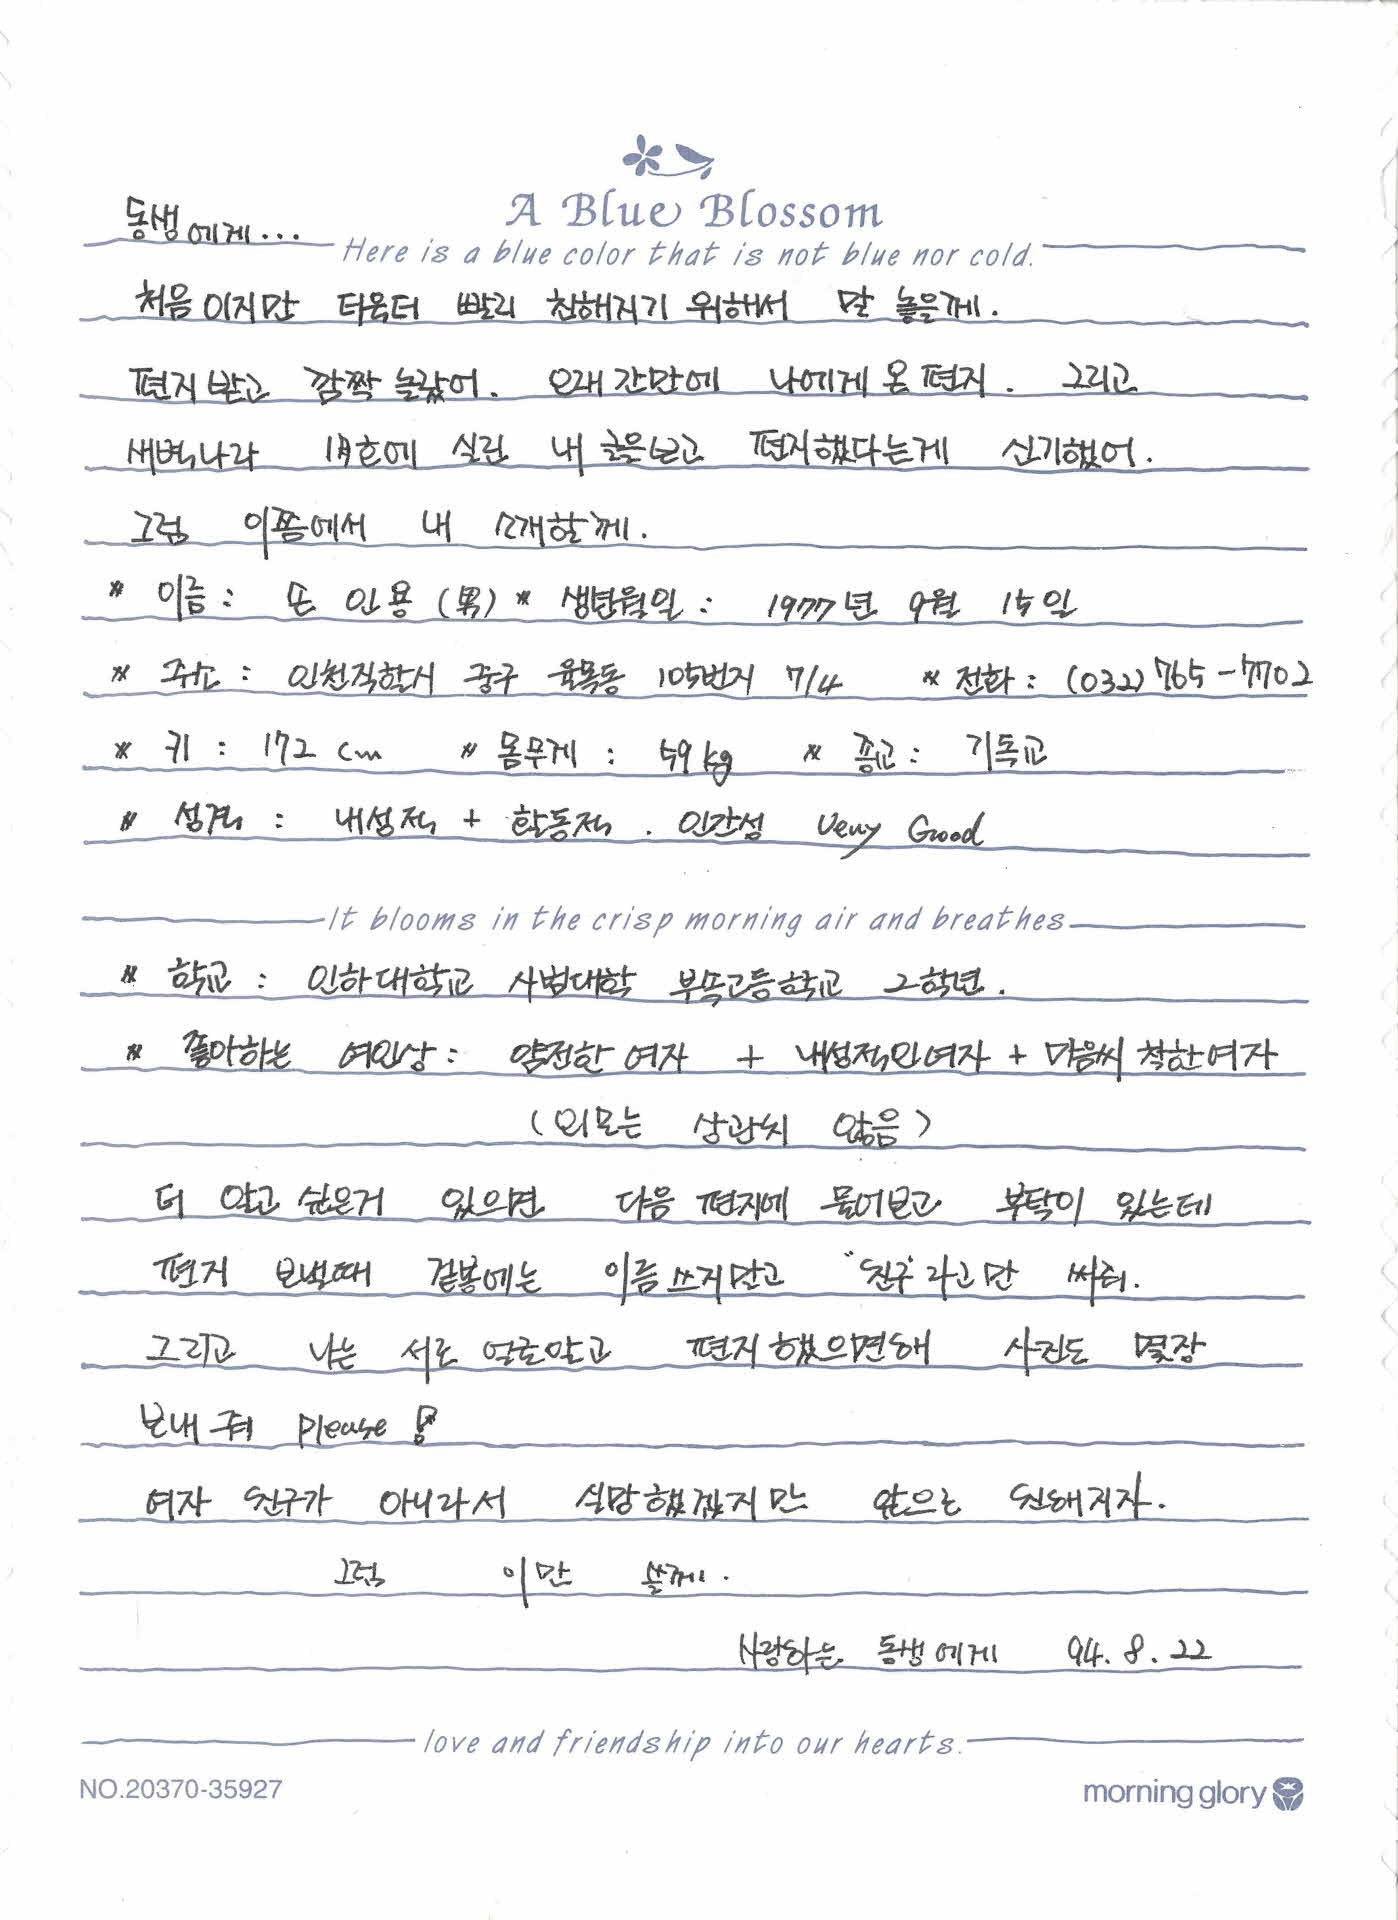 A Blue Blossom
동생에게...
Here is a blue color that is not blue nor cold.
처음이지만 더욱더 빨리 친해지기 위해서 말 놓을께.
편지받고 깜짝 놀랐어. 오래간만에 나에게 온 편지. 그리고
새벽나라 1月호에 실린 내 글을보고 편지했다는게 신기했어.
그럼 이쯤에서 내 소개할께.
* 이름 : 손 인 용 (男) * 생년월일 : 1977년 9월 15일
* 주소 : 인천직할시 중구 율목동 105번지 7/4 * 전화 : (032) 765-7702
* 키 : 172 cm * 몸무게 : 59 kg * 종교 : 기독교
* 성격 : 내성적 + 활동적 . 인간성 Very Good
It blooms in the crisp morning air and breathes
* 학교 : 인하대학교 사범대학 부속고등학교 2학년.
* 좋아하는 여인상 : 얌전한 여자 + 내성적인여자 + 마음씨 착한여자
(외모는 상관치 않음)
더 알고 싶은거 있으면 다음 편지에 물어보고 부탁이 있는데
편지 보낼때 겉봉에는 이름쓰지말고 "친구"라고만 써줘.
그리고 나는 서로 얼굴알고 편지했으면해 사진도 몇장
보내줘 please!
여자 친구가 아니라서 실망했겠지만 앞으로 친해지자.
그럼 이만 쓸께.
사랑하는 동생에게 94. 8. 22
love and friendship into our hearts.
NO.20370-35927
morning glory